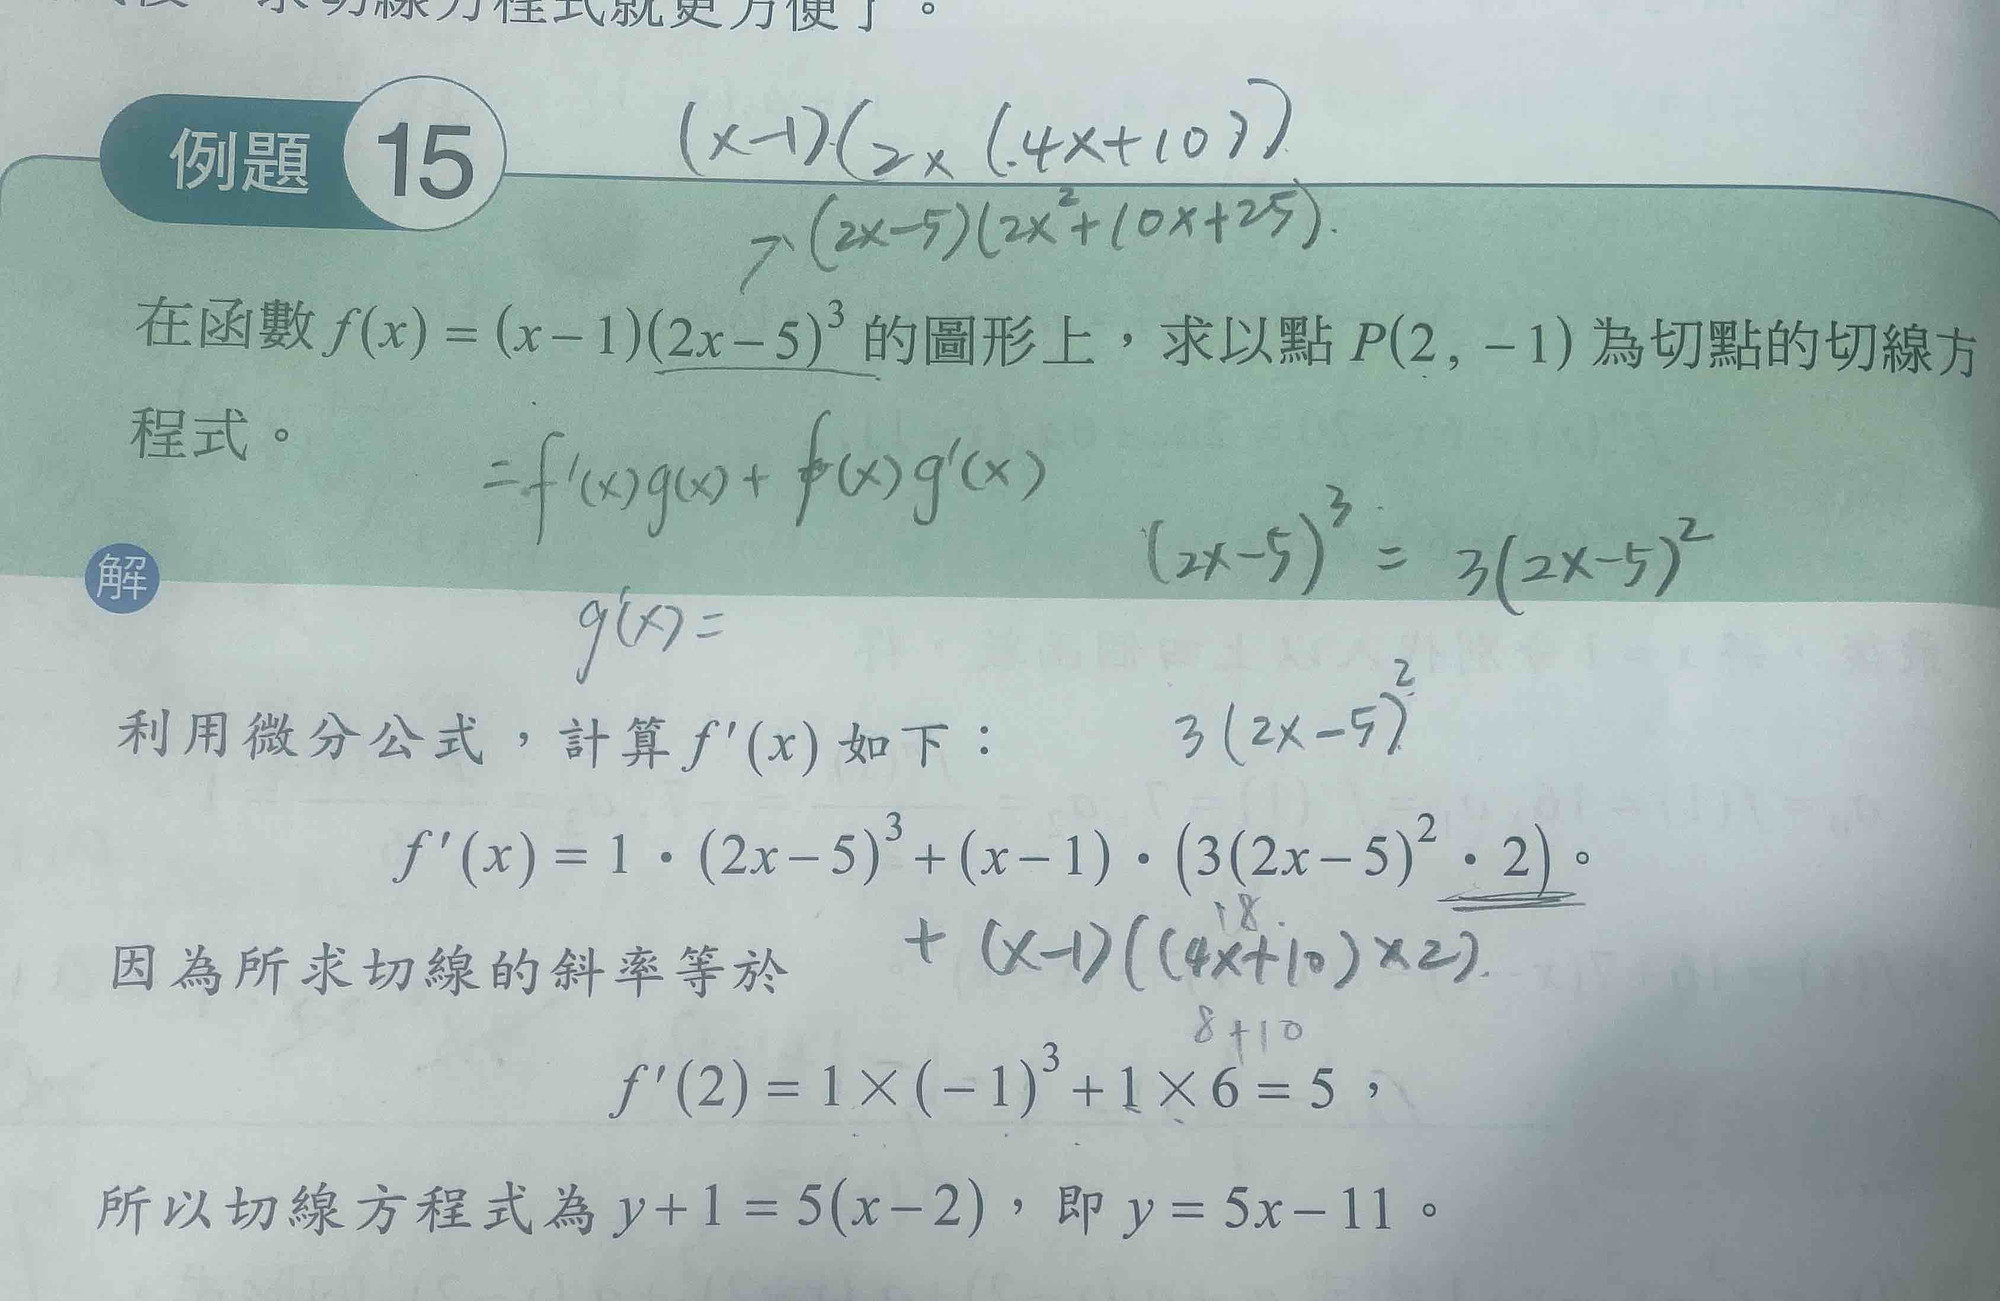 求切線方程式就更方便了。
例題 15
(x-1)(2x(4x+10))
(2x-5)(2x²+10x+25).
在函數 f(x) = (x-1)(2x-5)³ 的圖形上，求以點 P(2, -1) 為切點的切線方
程式。
= f'(x)g(x) + f(x)g'(x)
(2x-5)³ = 3(2x-5)²
解
g'(x) =
3(2x-5)²
利用微分公式，計算 f'(x) 如下：
f'(x) = 1·(2x-5)³+(x-1)·(3(2x-5)²·2)。
18
+ (x-1)((4x+10)×2).
因為所求切線的斜率等於
8+10
f'(2) = 1×(-1)³+1×6 = 5，
所以切線方程式為 y+1 = 5(x-2)，即 y = 5x-11。